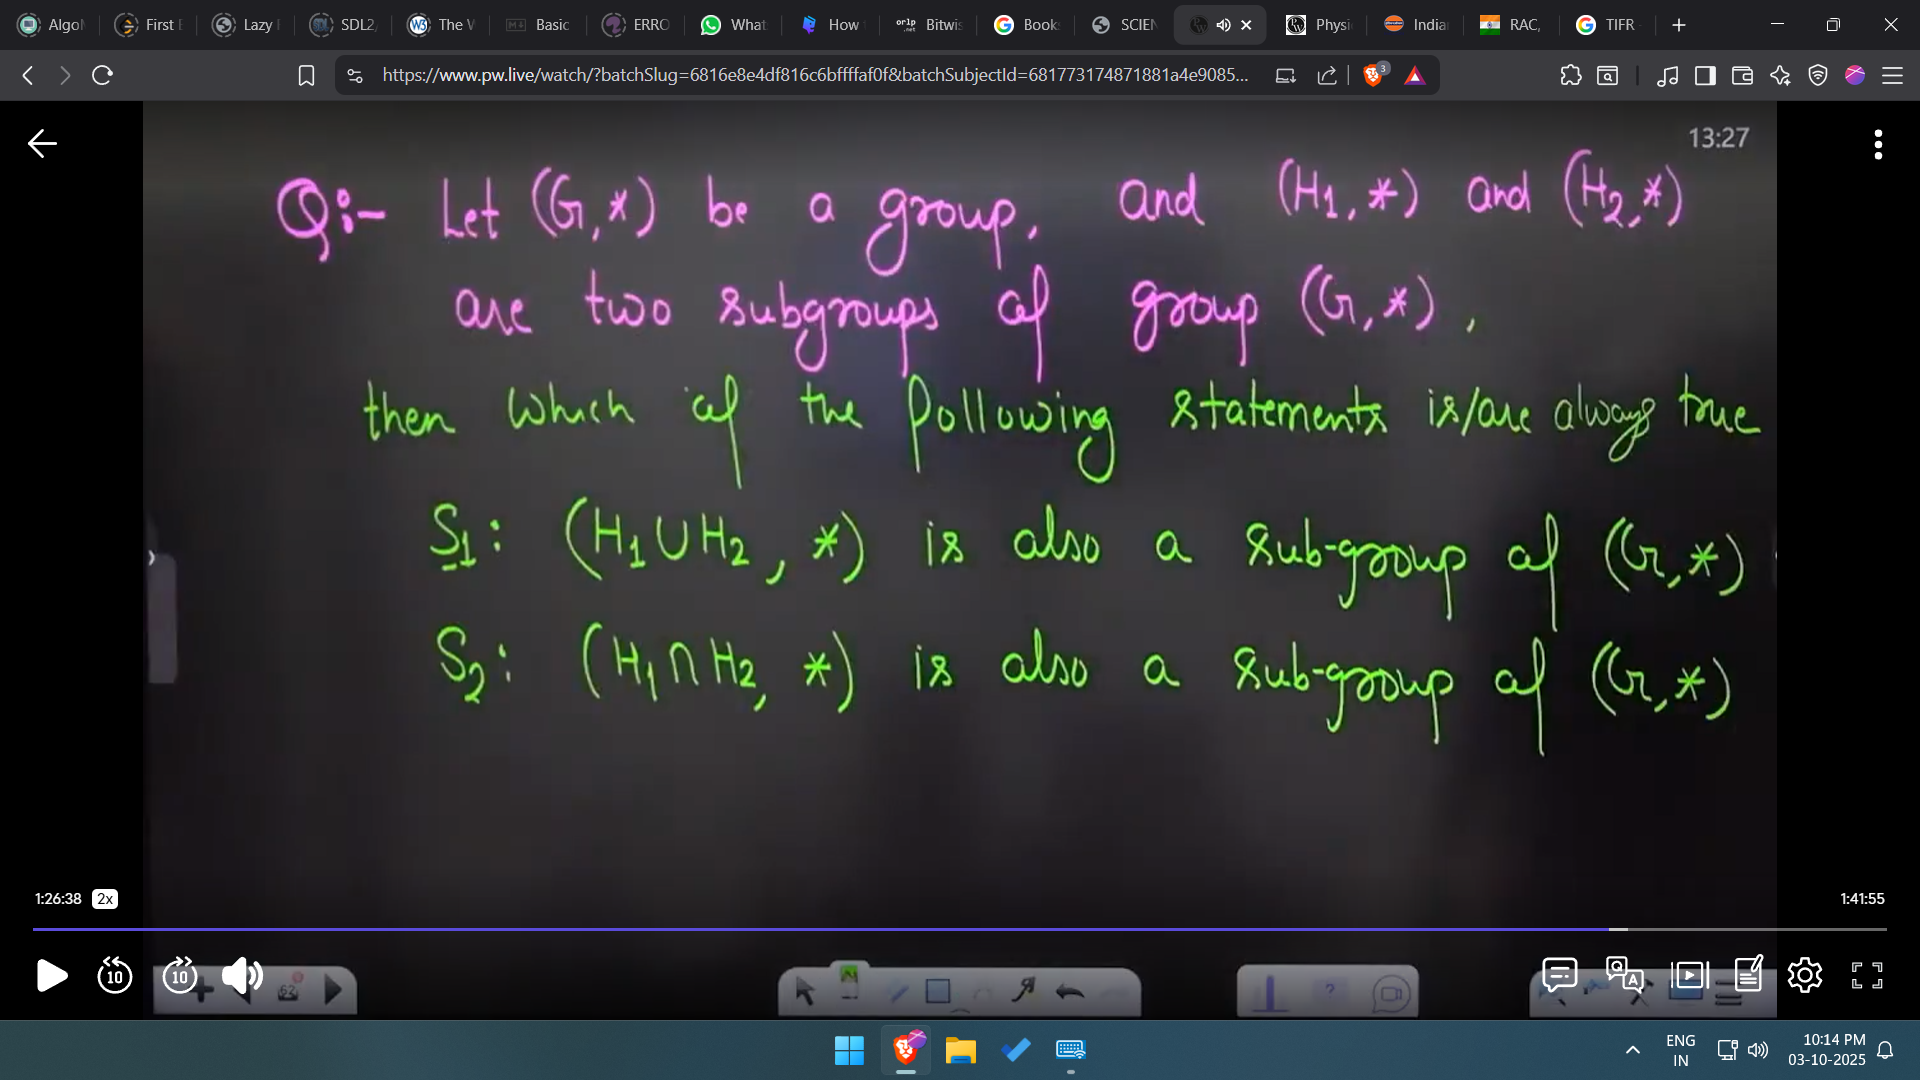 AlgoM
First E
Lazy
SDL2
The W
Basic
ERRO
What
How
orlp .net
Bitwis
Book
SCIEN
Physi
India
RAC,
TIFR
https://www.pw.live/watch/?batchSlug=6816e8e4df816c6bffffaf0f&batchSubjectId=681773174871881a4e9085...
3
13:27
Q:- Let (G,*) be a group, and (H1,*) and (H2,*)
are two subgroups of group (G,*),
then which of the following statements is/are always true
S1: (H1∪H2, *) is also a sub-group of (G,*)
S2: (H1∩H2, *) is also a sub-group of (G,*)
1:26:38 2x
1:41:55
10
10
62
ENG
IN
10:14 PM
03-10-2025